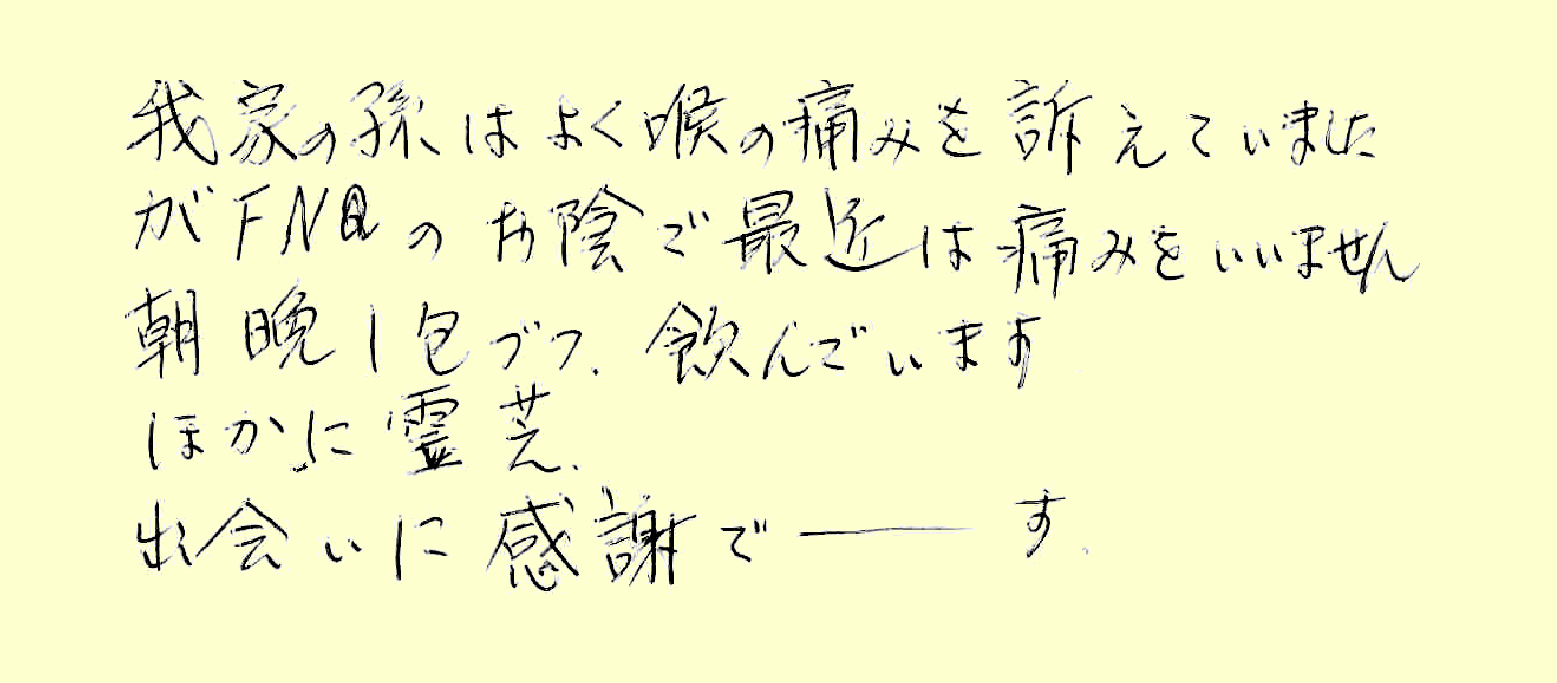 我家の孫はよく喉の痛みを訴えていました
がFNQのお陰で最近は痛みをいいません
朝晩1包づつ、飲んでいます
ほかに霊芝、
出会いに感謝で――す。